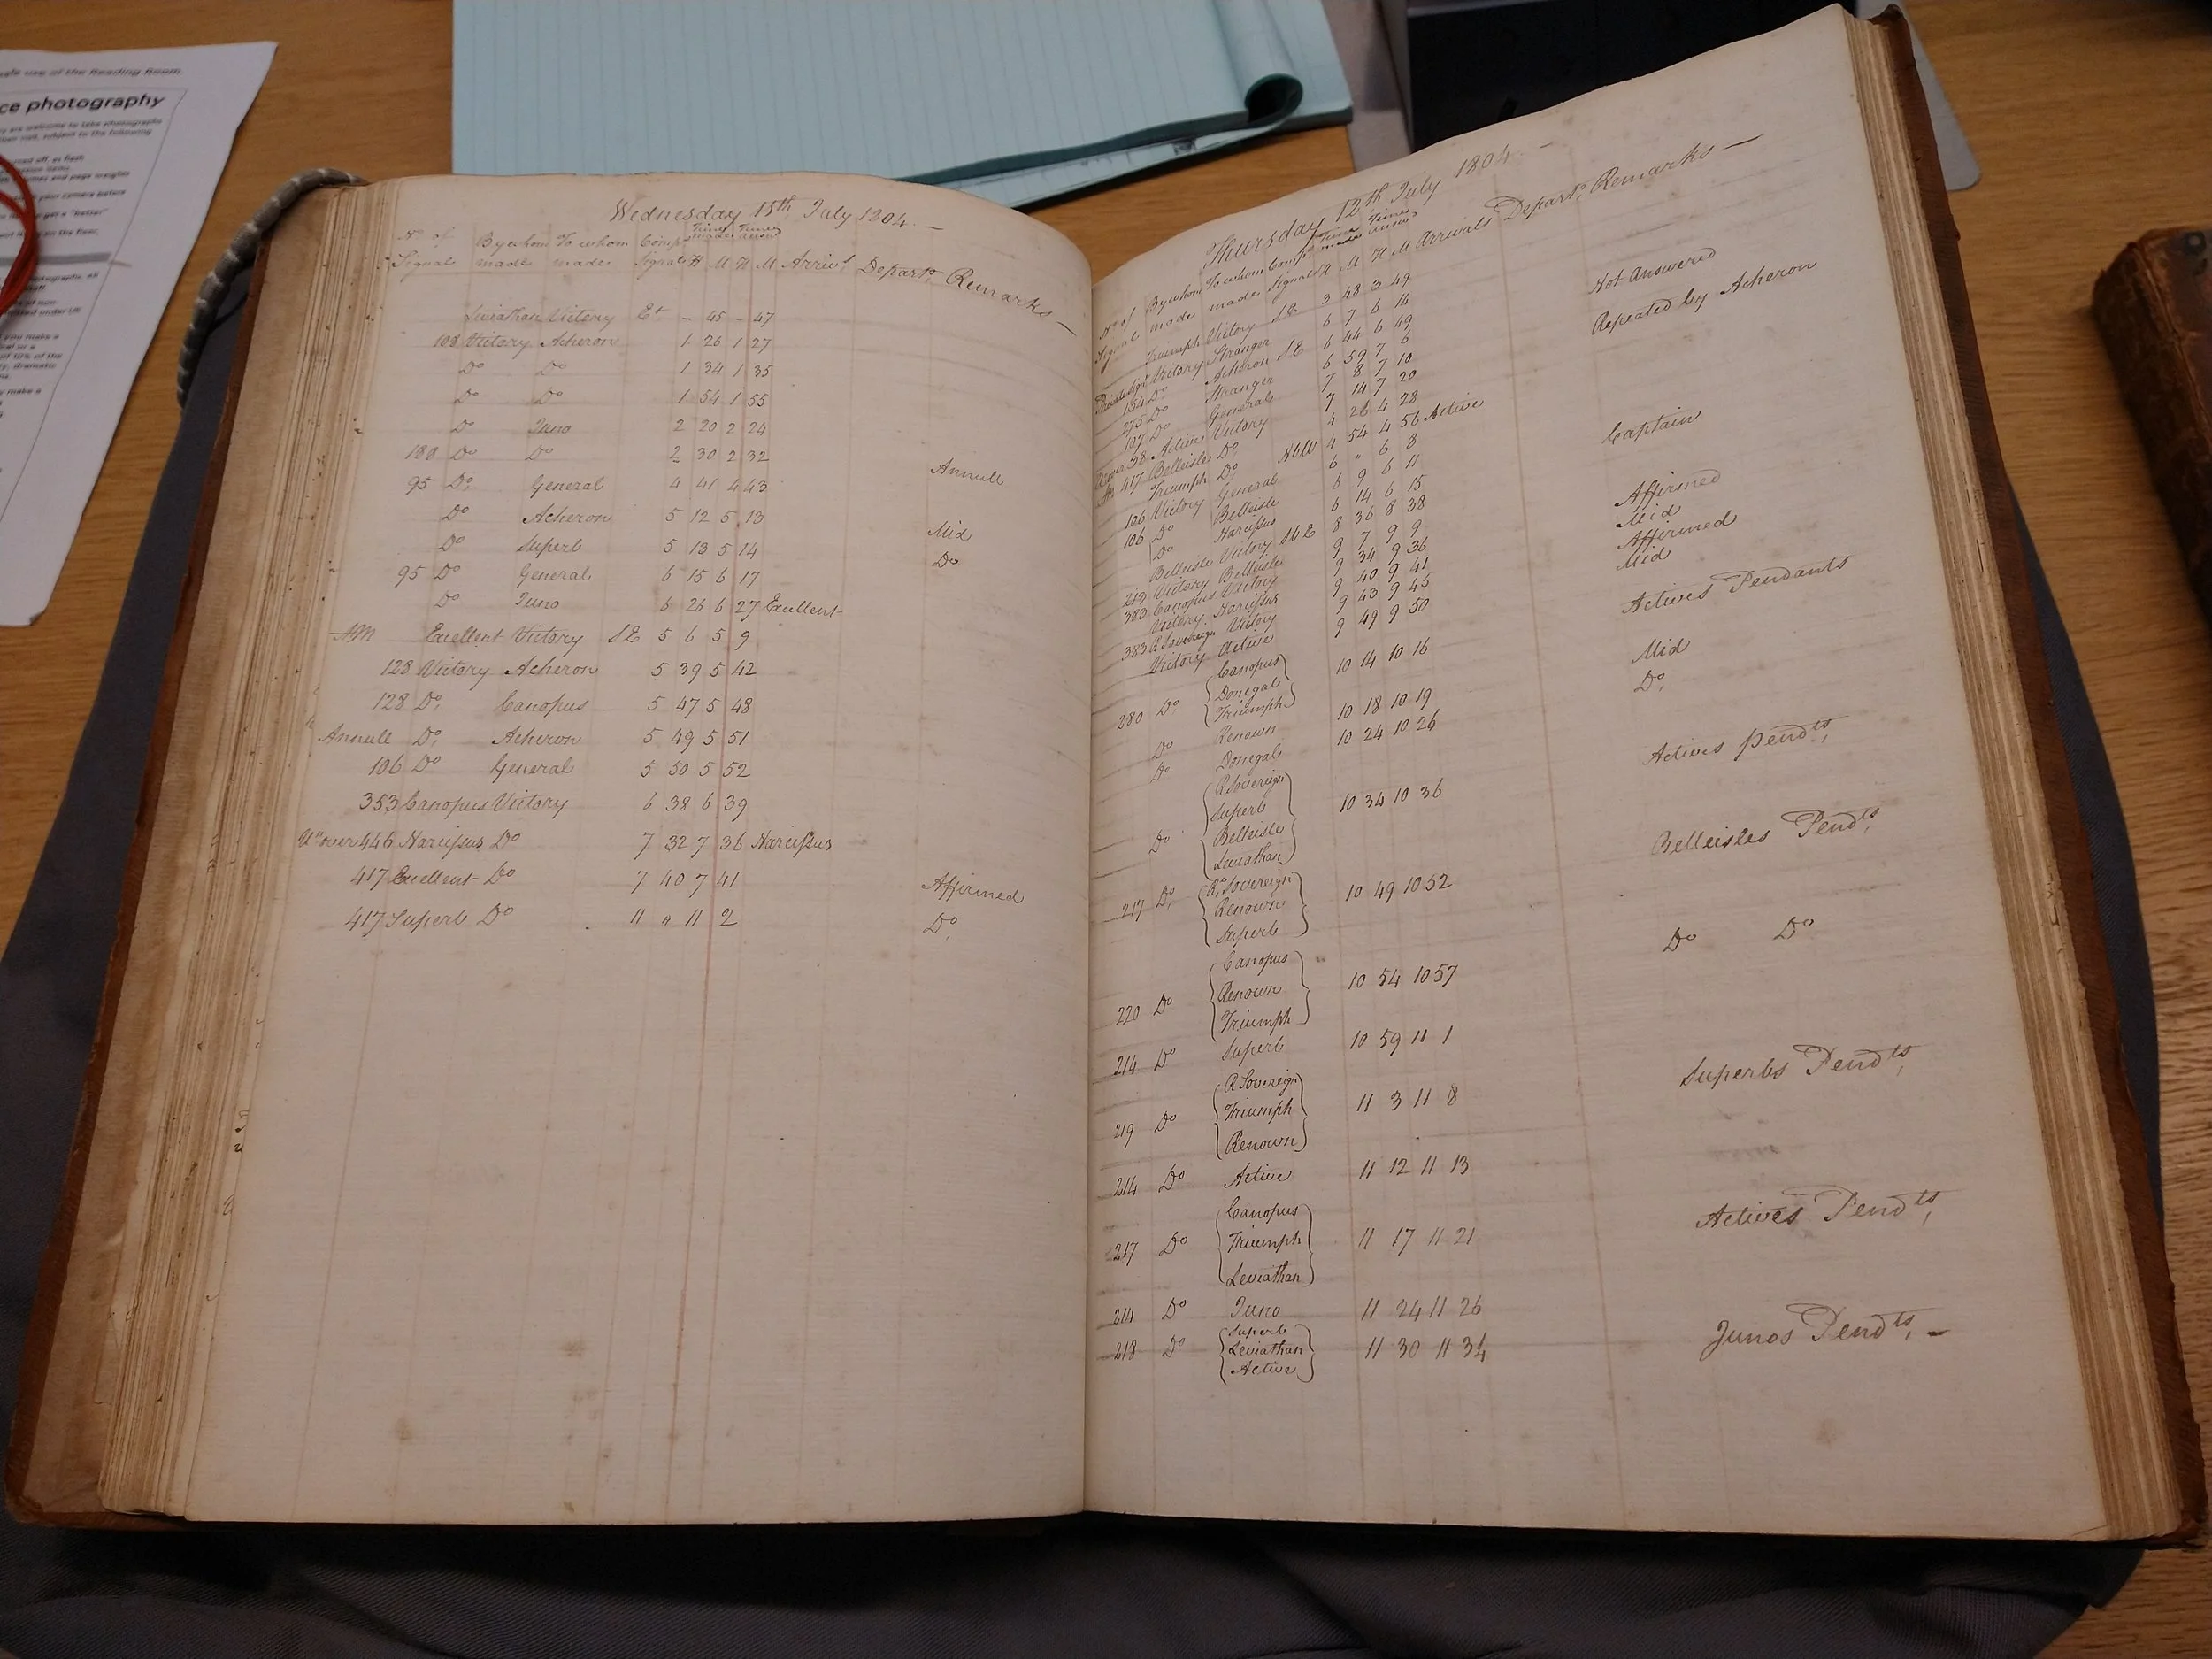 use of the Reading Room
ce photography
are welcome to take photographs
subject to the following
Wednesday 15th July 1804. —
No. of By whom To whom Comp Time made Time answd
Signals made made Signals H M H M Arrivl Depart. Remarks —
Leviathan Victory Et - 45 - 47
108 Victory Acheron 1 26 1 27
Do Do 1 34 1 35
Do Do 1 54 1 55
Do Juno 2 20 2 24
180 Do Do 2 30 2 32 Annull
95 Do General 4 41 4 43
Do Acheron 5 12 5 13 Mid
Do Superb 5 13 5 14 Do
95 Do General 6 15 6 17
Do Juno 6 26 6 27 Excellent
AM Excellent Victory SE 5 6 5 9
128 Victory Acheron 5 39 5 42
128 Do Canopus 5 47 5 48
Annull Do Acheron 5 49 5 51
106 Do General 5 50 5 52
353 Canopus Victory 6 38 6 39
Un over 446 Narcissus Do 7 32 7 36 Narcissus
417 Excellent Do 7 40 7 41 Affirmed
417 Superb Do 11 " 11 2 Do
Thursday 12th July 1804. —
No. of By whom To whom Comp Time made Time answd
Signals made made Signals H M H M Arrivals Depart. Remarks —
Triumph Victory SE 3 48 3 49
Private Sigl Victory Stranger 6 7 6 14 Not Answered
134 Do Acheron SE 6 44 6 49 Repeated by Acheron
275 Do Stranger 6 59 7 6
107 Do General 7 8 7 10
Un over 38 Active Victory 7 14 7 20
AM 417 Belleisle Do 4 26 4 28
Triumph Do NbW 4 54 4 56 Active
106 Victory General 6 " 6 8 Captain
106 Do Belleisle 6 9 6 11
Do Narcissus 6 14 6 15
Belleisle Victory SbE 8 36 8 38 Affirmed
213 Victory Belleisle 9 7 9 9 Mid
383 Canopus Victory 9 34 9 36 Affirmed
Victory Narcissus 9 40 9 41 Mid
383 R Sovereign Victory 9 43 9 45
Victory Active 9 49 9 50 Actives Pendants
280 Do Canopus
Donegal 10 14 10 16
Triumph
Do Renown 10 18 10 19 Mid
Do Donegal 10 24 10 26 Do
R Sovereign
Superb
Do Belleisle 10 34 10 36 Actives Pendts,
Leviathan
217 Do R. Sovereign
Renown 10 49 10 52 Belleisles Pendts,
Superb
Canopus
220 Do Renown 10 54 10 57 Do Do
Triumph
214 Do Superb 10 59 11 1
R Sovereign
219 Do Triumph 11 3 11 8 Superbs Pendts,
Renown
214 Do Active 11 12 11 13
Canopus
217 Do Triumph 11 17 11 21 Actives Pendts,
Leviathan
214 Do Juno 11 24 11 26
Superb
218 Do Leviathan 11 30 11 34 Junos Pendts, —
Active